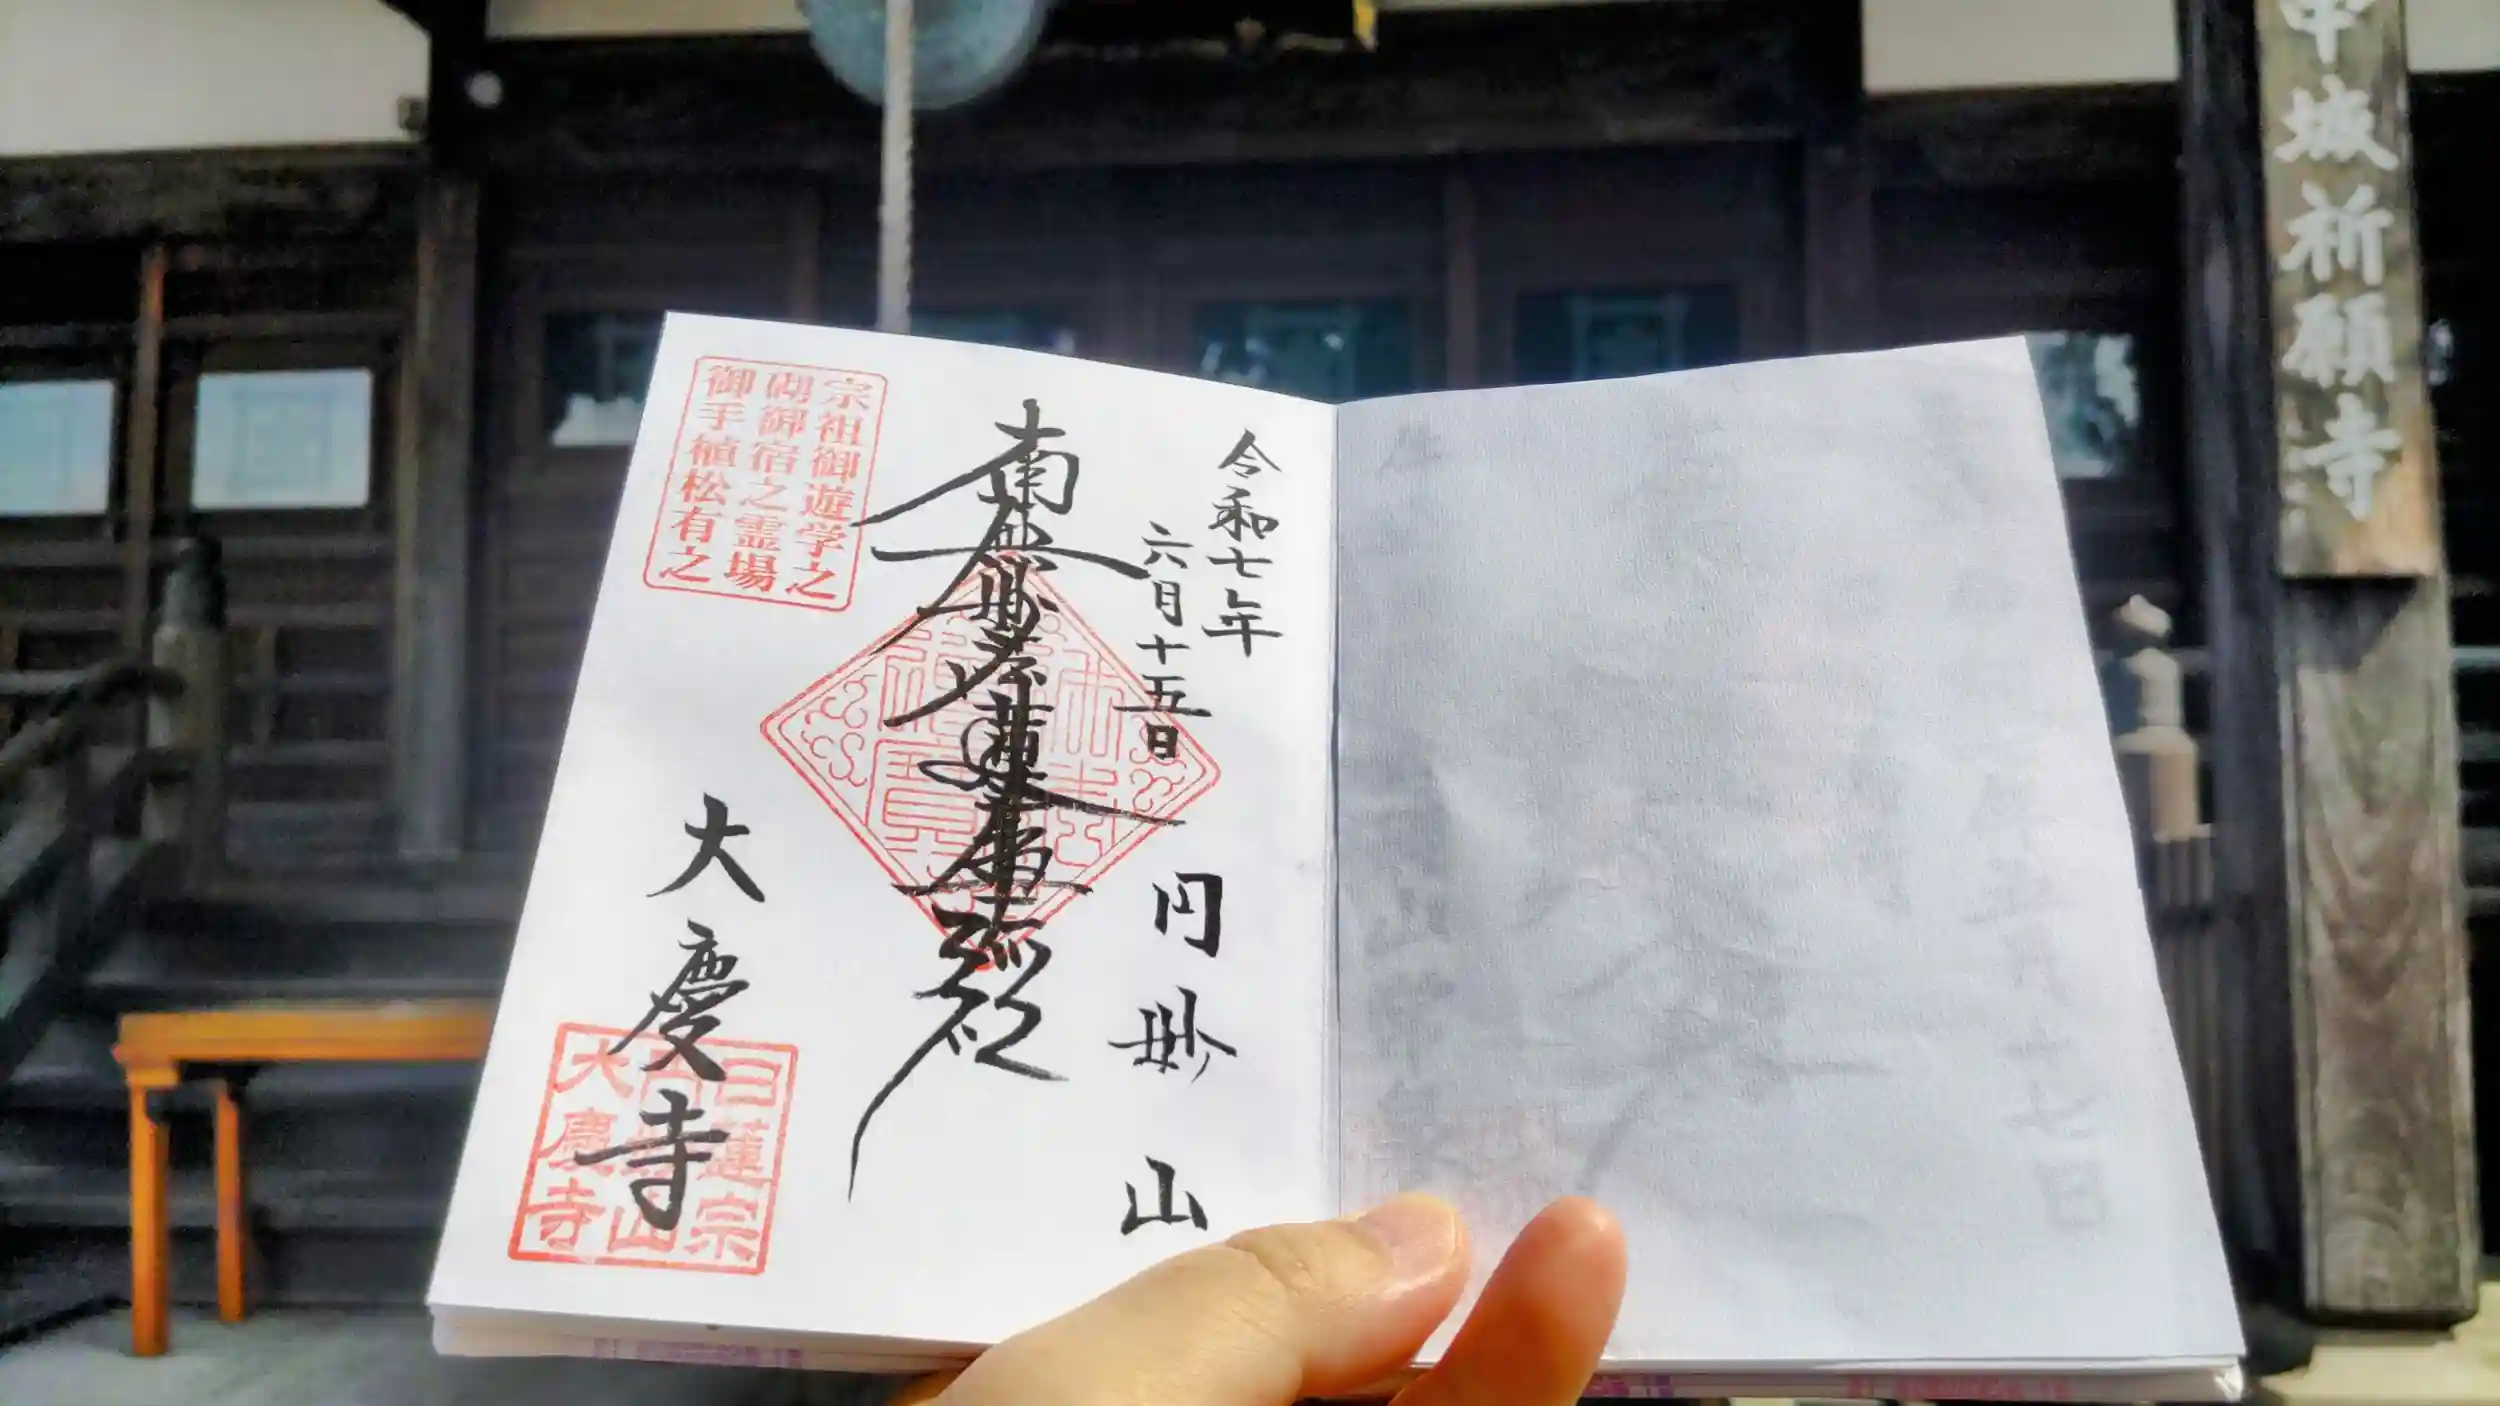 中城祈願寺
令和七年
六月十五日
円妙山
南無妙法蓮華経
宗祖御遊学之
砌御宿之霊場
御手植松有之
大慶寺
日蓮宗
大慶寺